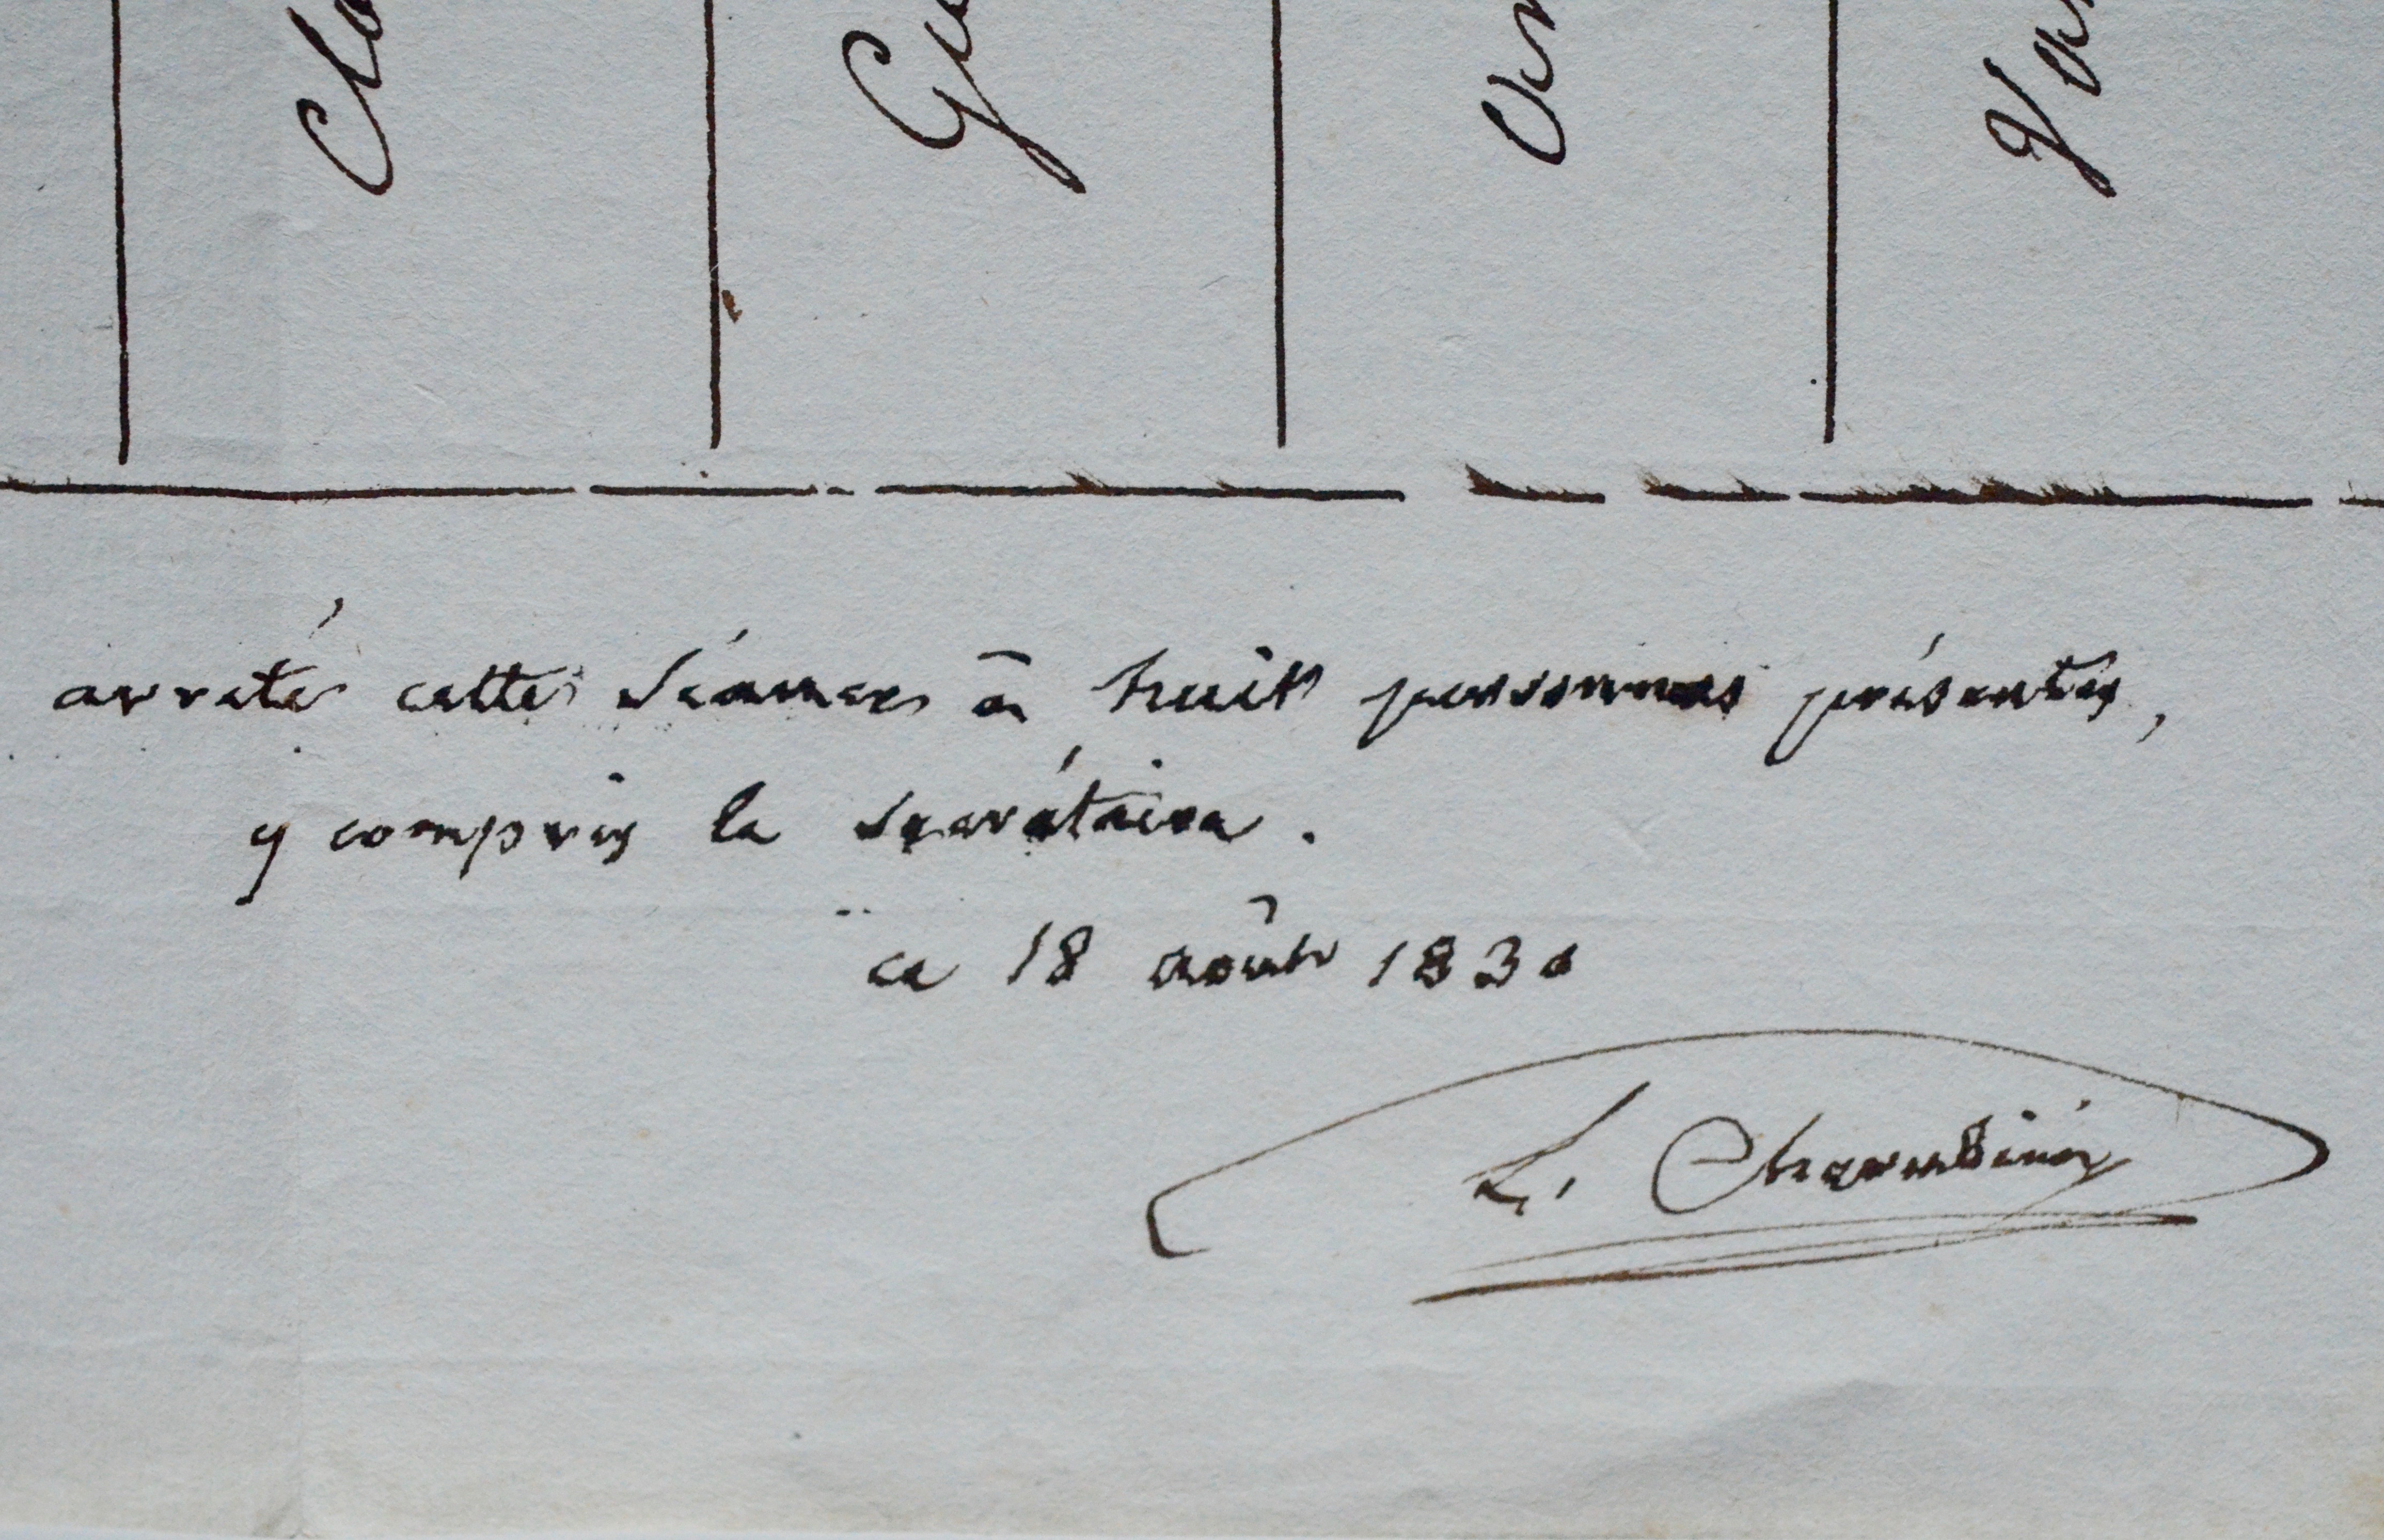 Cla
Gu
Van
arrêté cette séance à huit personnes présentes,
y compris le secrétaire.
ce 18 août 1830
L. Cherubini